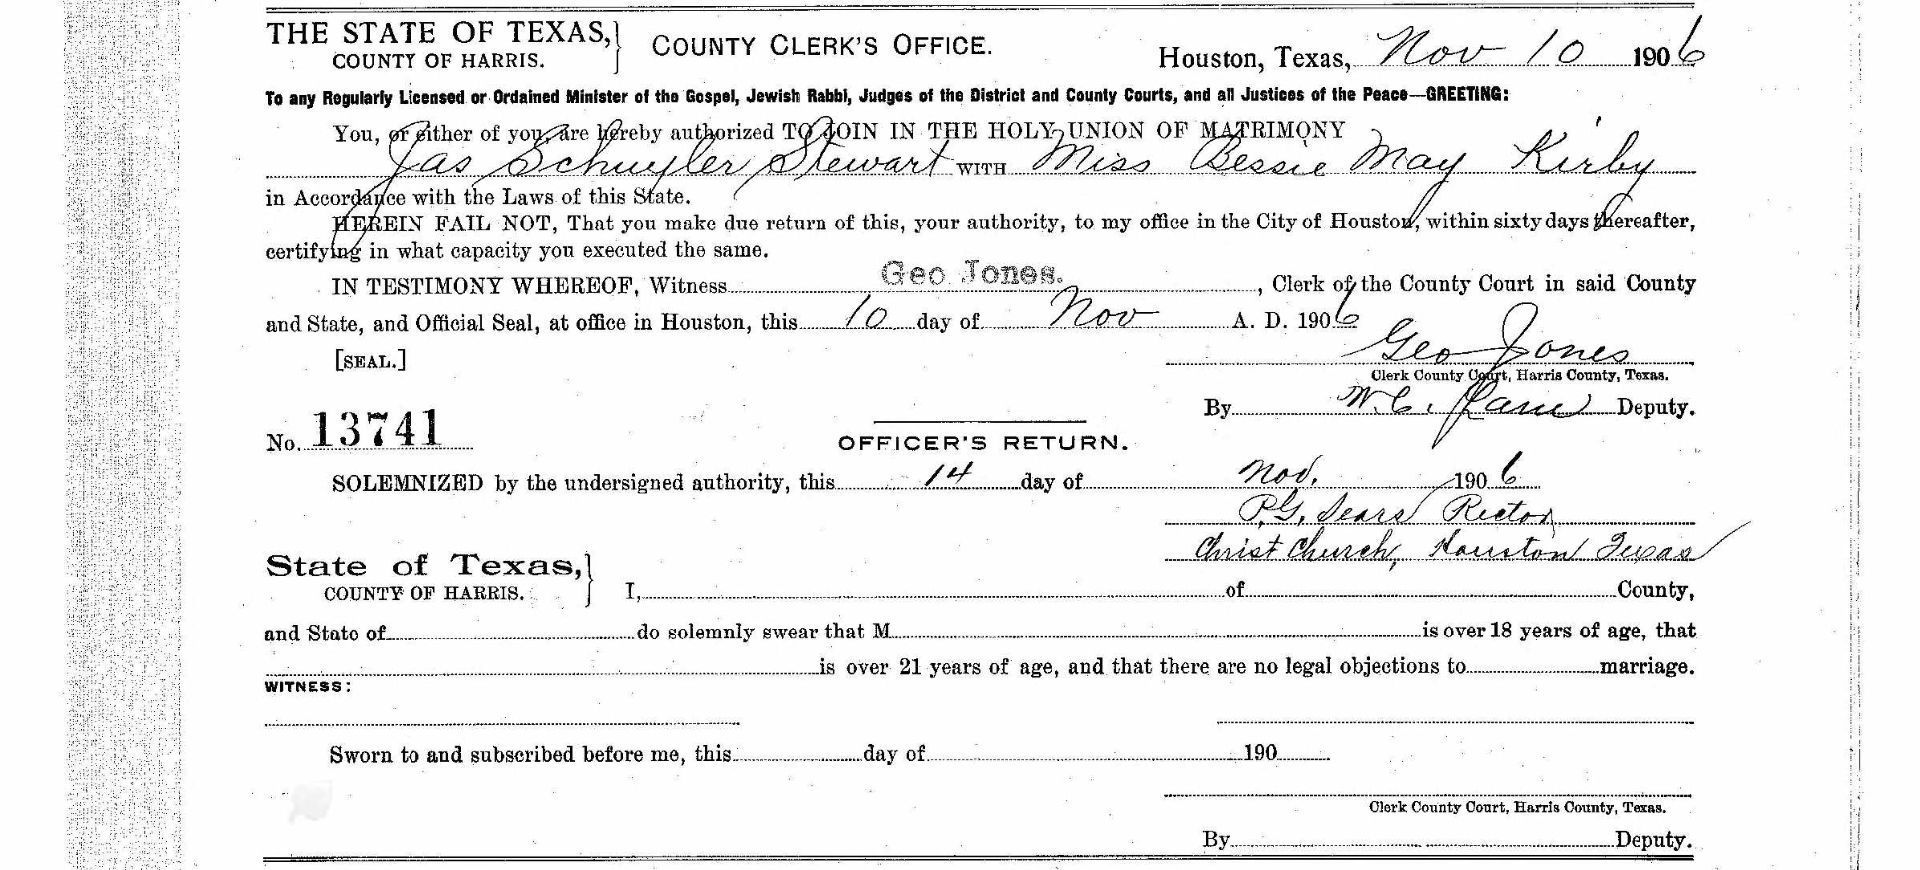 THE STATE OF TEXAS,} COUNTY CLERK'S OFFICE. Houston, Texas, Nov 10 1906
COUNTY OF HARRIS.
To any Regularly Licensed or Ordained Minister of the Gospel, Jewish Rabbi, Judges of the District and County Courts, and all Justices of the Peace—GREETING:
You, or either of you, are hereby authorized TO JOIN IN THE HOLY UNION OF MATRIMONY
Jas Schuyler Stewart WITH Miss Bessie May Kirby
in Accordance with the Laws of this State.
HEREIN FAIL NOT, That you make due return of this, your authority, to my office in the City of Houston, within sixty days thereafter,
certifying in what capacity you executed the same.
IN TESTIMONY WHEREOF, Witness Geo Jones. , Clerk of the County Court in said County
and State, and Official Seal, at office in Houston, this 10 day of Nov A. D. 1906
[SEAL.] Geo Jones
Clerk County Court, Harris County, Texas.
By W.C. Deputy.
No. 13741
OFFICER'S RETURN.
SOLEMNIZED by the undersigned authority, this 14 day of Nov. 1906
P.G. Sears Rector
Christ Church, Houston Texas
State of Texas,}
COUNTY OF HARRIS. I, of County,
and State of do solemnly swear that M is over 18 years of age, that
is over 21 years of age, and that there are no legal objections to marriage.
WITNESS:
Sworn to and subscribed before me, this day of 190
Clerk County Court, Harris County, Texas.
By Deputy.